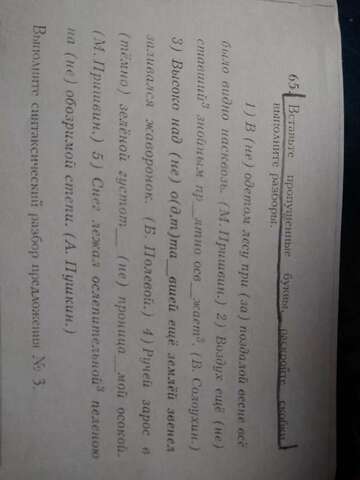 65. Вставьте пропущенные буквы, раскройте скобки,
выполните разборы.
1) В (не) одетом лесу при (за) поздалой весне всё
было видно насквозь. (М. Пришвин.) 2) Воздух ещё (не)
ставший³ знойным пр__ятно осв__жает². (В. Солоухин.)
3) Высоко над (не) о(д,т)та__вшей ещё землёй звенел
заливался жаворонок. (Б. Полевой.) 4) Ручей зарос в
(тёмно) зелёной густот__ (не) проница__мой осокой.
(М. Пришвин.) 5) Снег лежал ослепительной³ пеленою
на (не) обозримой степи. (А. Пушкин.)
Выполните синтаксический разбор предложения № 3.